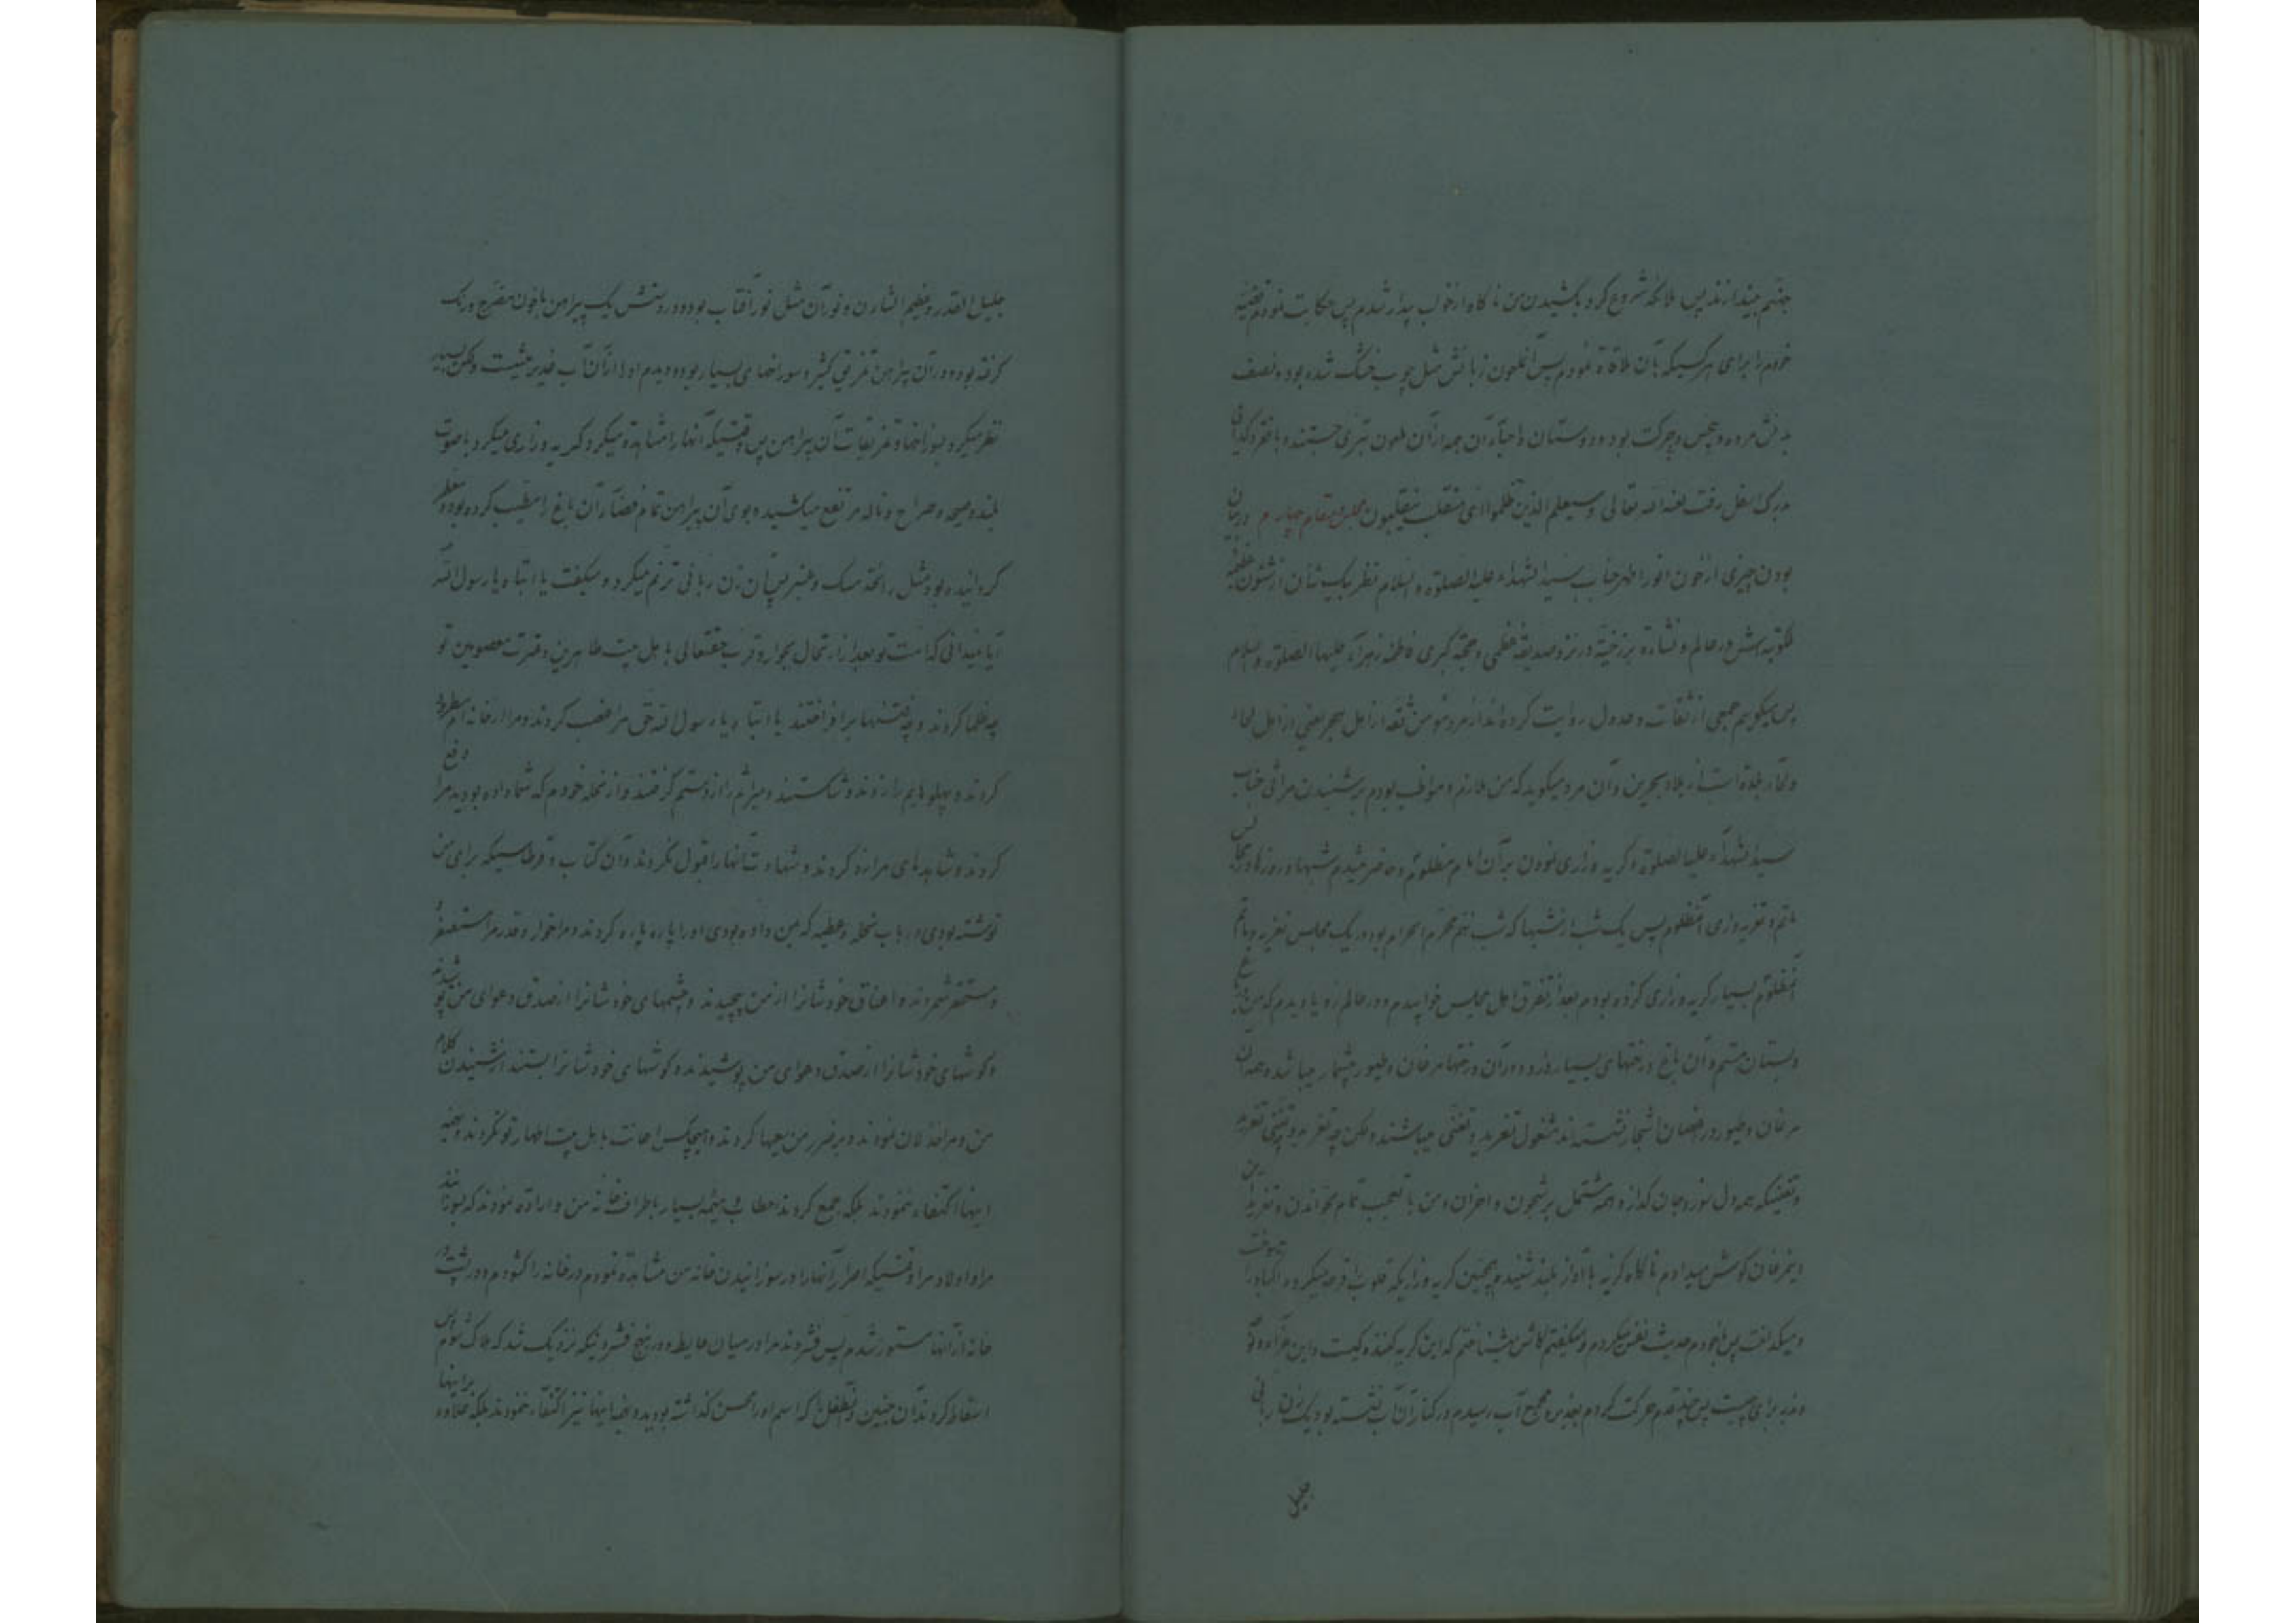 جهنم بیندازند پس ملائکه شروع کرد بکشیدن من ناکاه از خواب بیدار شدم پس حکایت نمودم قضیه
خودم را برای هر کسیکه بآن ملاقاة نمودم پس آنملعون زبانش مثل چوب خشک شده بود و نصف
بدنش مرده و بیحس و حرکت بود و دوستان و احبآء آن همه از آن ملعون تبری جستند و با فقر و کدائی
بدرک اسفل رفت لعنه الله تعالی وسیعلم الذین ظلموا ای منقلب ینقلبون مجلس مقام چهارم در بیان
بودن چیزی از خون انور اطهر جناب سید الشهداء علیه الصلوة و السلام نظر بیک شأن از شئون عظیمه
ملکوتیه اش در عالم و نشاءة برزخیة در نزد صدیقه عظمی و حجة کبری فاطمه زهرآء علیها الصلوة و السلام
پس میکویم جمعی از ثقات و عدول روایت کرده اند از مرد مؤمن ثقه از اهل هجر یعنی از اهل لحاء
و لحآء بلدة است از بلاد بحرین و آن مرد میکوید که من ملازم و مواظب بودم بر شنیدن مراثی جناب
سید الشهدآء علیه الصلوة و کریه و زاری نمودن بر آن امام مظلوم و حاضر میشدم شبها و روزها در مجالس
ماتم و تعزیه داری آنمظلوم پس یک شب از شبها که شب نهم محرم الحرام بود در یک مجالس تعزیه و ماتم
آنمظلوم بسیار کریه و زاری کرده بودم بعد از تفرق اهل مجالس خوابیدم و در عالم رؤیا دیدم که من در باغ
و بستان هستم و آن باغ درختهای بسیار دارد و در آن درختها مرغان و طیور بیشمار میباشد و همه آن
مرغان و طیور در اغصان اشجار نشسته اند مشغول تغرید و تغنی میباشند ولکن چه تغرید و تغنی تغرید
و تغنیکه همه دل سوز و جان کداز و همه مشتمل بر شجون و احزان و من با تعجب تمام بخواندن و تغرید این
مرغان کوش میدادم ناکاه کریه با آواز بلند شنیدم و چنین کریه و زاریکه قلوب را قرحه میکرد و اکباد را میسوخت
و میکداخت پس بخودم حدیث نفس میکردم و میکفتم کاش میشناختم که این کریه کننده کیست و این
و ندبه برای چیست پس چند قدم حرکت کردم بغدیر و مجمع آب رسیدم در کنار آن آب نشسته بود یک زن ربانی
جلیل
جلیل القدر و عظیم الشأن و نور آن مثل نور آفتاب بود و در دستش یک پیراهن با خون مضرج و رنک
کرفته بود و در آن پیراهن تمزیق کثیر و سوراخهای بسیار بود و دیدم او از آن آب غدیر میشست ولکن بسیار
نظر میکرد بسوراخها و تمزیقات آن پیراهن پس وقتیکه آنها را مشاهده میکرد کریه و زاری میکرد با صوت
بلند و صیحه و صراخ و ناله مرتفع میکشید و بوی آن پیراهن تمام فضآء آن باغ را مطیب کرده بود و معطر
کردانیده بود مثل رائحه مسک و عنبر پس آن زن ربانی ترنم میکرد و میکفت یا ابتاه یا رسول الله
آیا نمیدانی که امت تو بعد از ارتحال بجوار و قرب حقتعالی باهل بیت طاهرین و عترت معصومین تو
چه ظلمها کردند و چه فتنها برافراختند یا ابتاه و یا رسول الله حق مرا غصب کردند و مرا از خانه ام مطرود
کردند و پهلوهایم را زدند و شکستند و میراثم را از دستم کرفتند و از نحله خودم که شما داده بودید مرا دفع
کردند و شاهدهای مرا رد کردند و شهادت آنها را قبول نکردند و آن کتاب و قرطاسیکه برای من
نوشته بودی در باب نحله و عطیه که بمن داده بودی او را پاره پاره کردند و مرا خوار و قدر مرا مستصغر و
مستحقر شمردند و اعناق خودشانرا از من پیچیدند و چشمهای خودشانرا از صدق دعوای من پوشیدند
و کوشهای خودشانرا از صدق دعوای من پوشیدند و کوشهای خودشانرا بستند از شنیدن کلام
من و مرا خذلان نمودند و بر ضرر من سعیها کردند و هیچکس اعانت باهل بیت اطهار تو نکردند و بهمه
اینها اکتفاء ننمودند بلکه جمع کردند حطاب و هیمه بسیار باطراف خانه من و اراده نمودند که بسوزانند
مرا و اولاد مرا وقتیکه اصرار آنها را در سوزانیدن خانه من مشاهده نمودم در خانه را کشودم و در پشت در
خانه از آنها مستور شدم پس فشردند مرا در میان حایط و در بنهج فشردنیکه نزدیک شد که هلاک شوم پس
اسقاط کردند آن جنین و آنطفل را که اسم او را محسن کذاشته بودید و بهمه اینها نیز اکتفاء ننمودند بلکه علاوه بر اینها